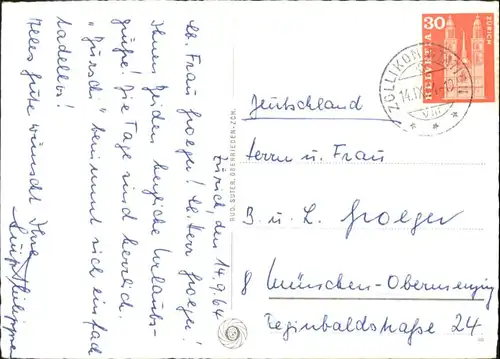 Zürich, den 14.9.64
Lb. Frau Groeger! Lb. Herr Groeger!
Ihnen Beiden herzliche Urlaubs-
grüße! Die Tage sind herrlich.
"Purschi" benimmt sich einfach
tadellos!
Alles Gute wünscht Ihre
Philippe
RUD. SUTER, OBERRIEDEN-ZCH.
30
HELVETIA
ZÜRICH
ZOLLIKON
14.IX.
VIII
Deutschland
Herrn u. Frau
B. u. L. Groeger
8 München-Obermenzing
Reginbaldstraße 24.